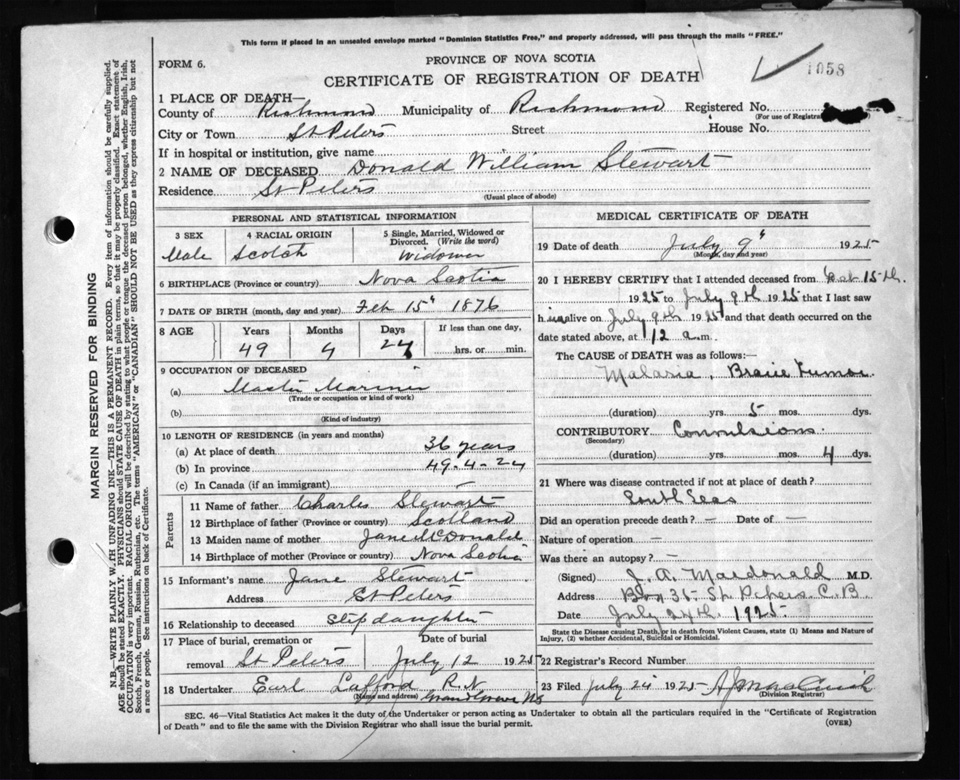 This form if placed in an unsealed envelope marked "Dominion Statistics Free," and properly addressed, will pass through the mails "FREE."
FORM 6.
PROVINCE OF NOVA SCOTIA
CERTIFICATE OF REGISTRATION OF DEATH
1058
1 PLACE OF DEATH—
County of Richmond Municipality of Richmond Registered No.
(For use of Registrar
City or Town St Peters Street House No.
If in hospital or institution, give name
2 NAME OF DECEASED Donald William Stewart
Residence St Peters
(Usual place of abode)
PERSONAL AND STATISTICAL INFORMATION
3 SEX Male
4 RACIAL ORIGIN Scotch
5 Single, Married, Widowed or Divorced. (Write the word) Widower
6 BIRTHPLACE (Province or country) Nova Scotia
7 DATE OF BIRTH (month, day and year) Feb 15" 1876
8 AGE Years Months Days If less than one day,
49 4 24 hrs. or min.
9 OCCUPATION OF DECEASED
(a) Master Mariner
(Trade or occupation or kind of work)
(b)
(Kind of industry)
10 LENGTH OF RESIDENCE (in years and months)
(a) At place of death 36 years
(b) In province 49-4-24
(c) In Canada (if an immigrant) —
Parents
11 Name of father Charles Stewart
12 Birthplace of father (Province or country) Scotland
13 Maiden name of mother Jane McDonald
14 Birthplace of mother (Province or country) Nova Scotia
15 Informant's name Jane Stewart
Address St Peters
16 Relationship to deceased Stepdaughter
17 Place of burial, cremation or Date of burial
removal St Peters July 12 1925
18 Undertaker Earl Lafford R.N
(Name and address) Grand Greve N.S
MEDICAL CERTIFICATE OF DEATH
19 Date of death July 9" 1925
(Month, day and year)
20 I HEREBY CERTIFY that I attended deceased from 15th
1925 to July 9th 1925 that I last saw
him alive on July 9th 1925 and that death occurred on the
date stated above, at 12 a.m.
The CAUSE of DEATH was as follows:
Malaria, Brain Tumor
(duration) yrs. 5 mos. dys.
CONTRIBUTORY Convulsions
(Secondary)
(duration) yrs. mos. 4 dys.
21 Where was disease contracted if not at place of death?
South Seas
Did an operation precede death? — Date of —
Nature of operation —
Was there an autopsy? —
(Signed) J. A. Macdonald M.D.
Address Box 35- St Peters C.B.
Date July 24th. 1925.
State the Disease causing Death, or in death from Violent Causes, state (1) Means and Nature of
Injury, (2) whether Accidental, Suicidal or Homicidal.
22 Registrar's Record Number
23 Filed July 24 1925
(Division Registrar)
SEC. 46—Vital Statistics Act makes it the duty of the Undertaker or person acting as Undertaker to obtain all the particulars required in the "Certificate of Registration
of Death" and to file the same with the Division Registrar who shall issue the burial permit.
(OVER)
MARGIN RESERVED FOR BINDING
N.B.—WRITE PLAINLY WITH UNFADING INK—THIS IS A PERMANENT RECORD. Every item of information should be carefully supplied.
AGE should be stated EXACTLY. PHYSICIANS should STATE CAUSE OF DEATH in plain terms, so that it may be properly classified. Exact statement of
OCCUPATION is very important. RACIAL ORIGIN will be described by stating to what people or tongue the deceased person belonged, whether English, Irish,
Scotch, French, German, Russian, Ruthenian, etc. The terms "AMERICAN" or "CANADIAN" SHOULD NOT BE USED as they express citizenship but not
a race or people. See instructions on back of Certificate.